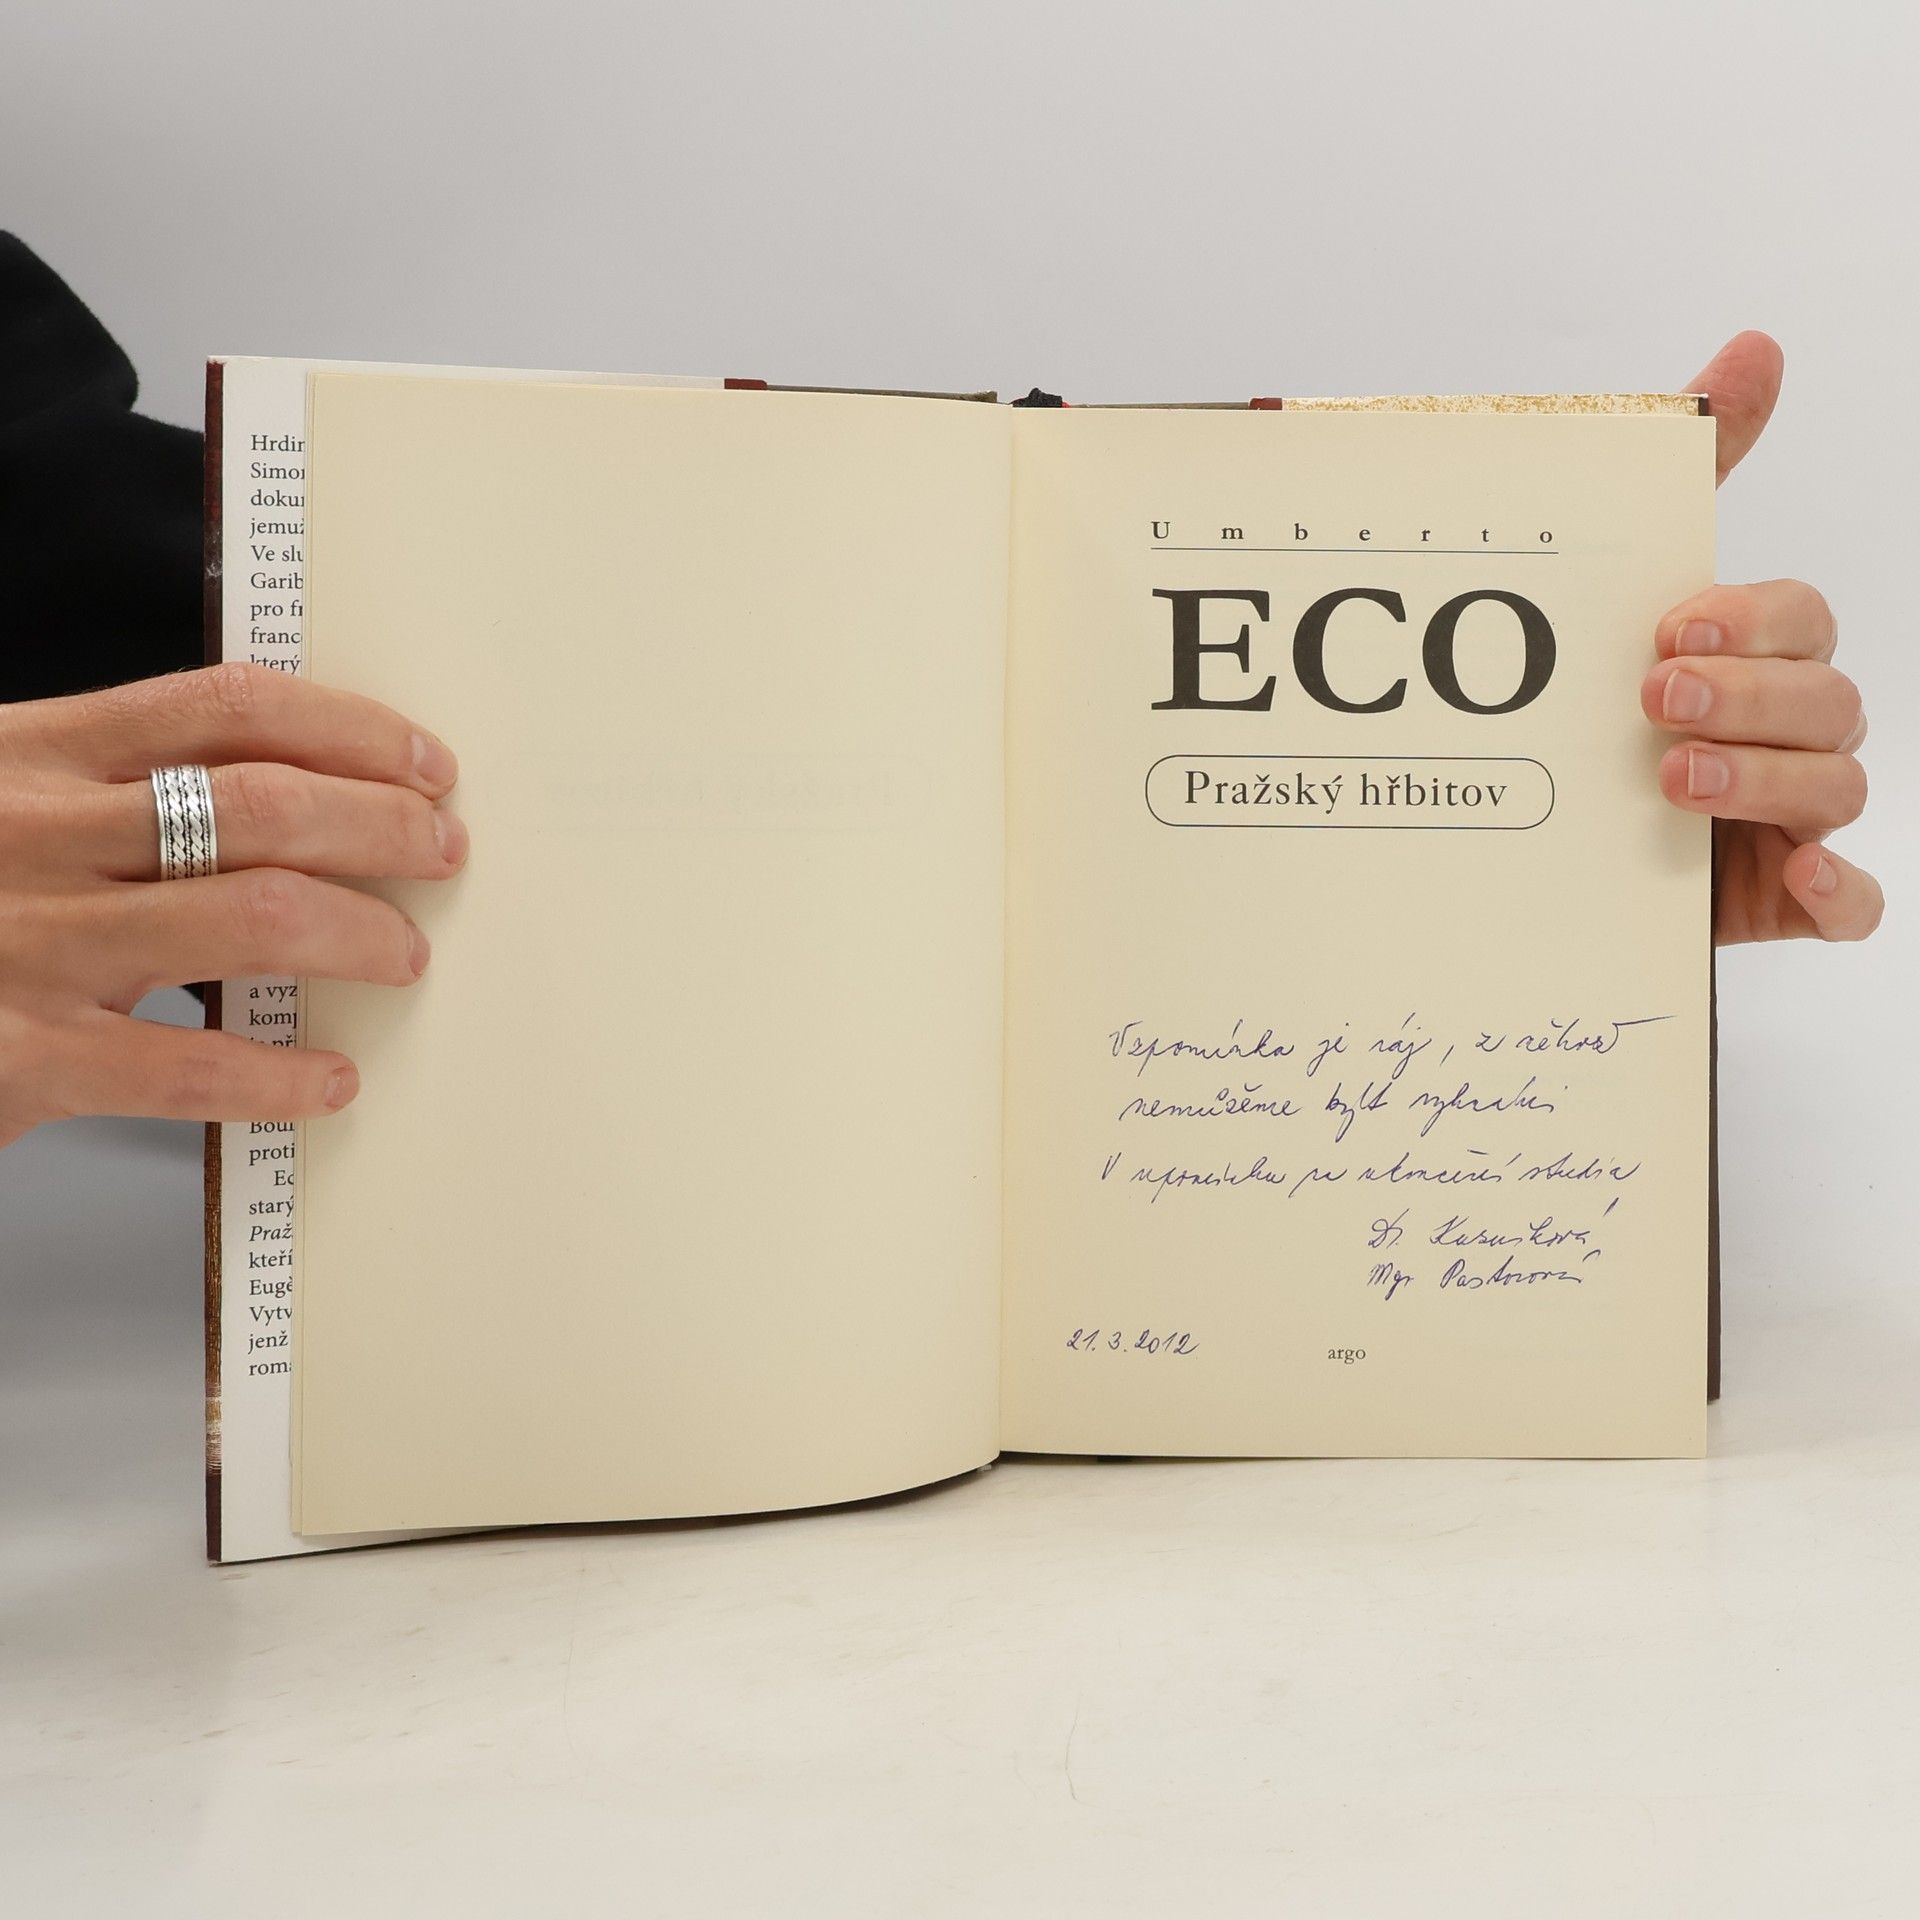 Hrdin
Simon
dokum
jemuž
Ve slu
Garib
pro fr
franco
který
a vyz
komp
Boul
proti
Ec
starý
Praž
kteří
Eugè
Vytv
jenž
romá
U m b e r t o
ECO
Pražský hřbitov
Vzpomínka je ráj, z něhož
nemůžeme být vyhnáni
V upomínku na ukončení studia
Dr.
Mgr Pastorová
21.3.2012
argo